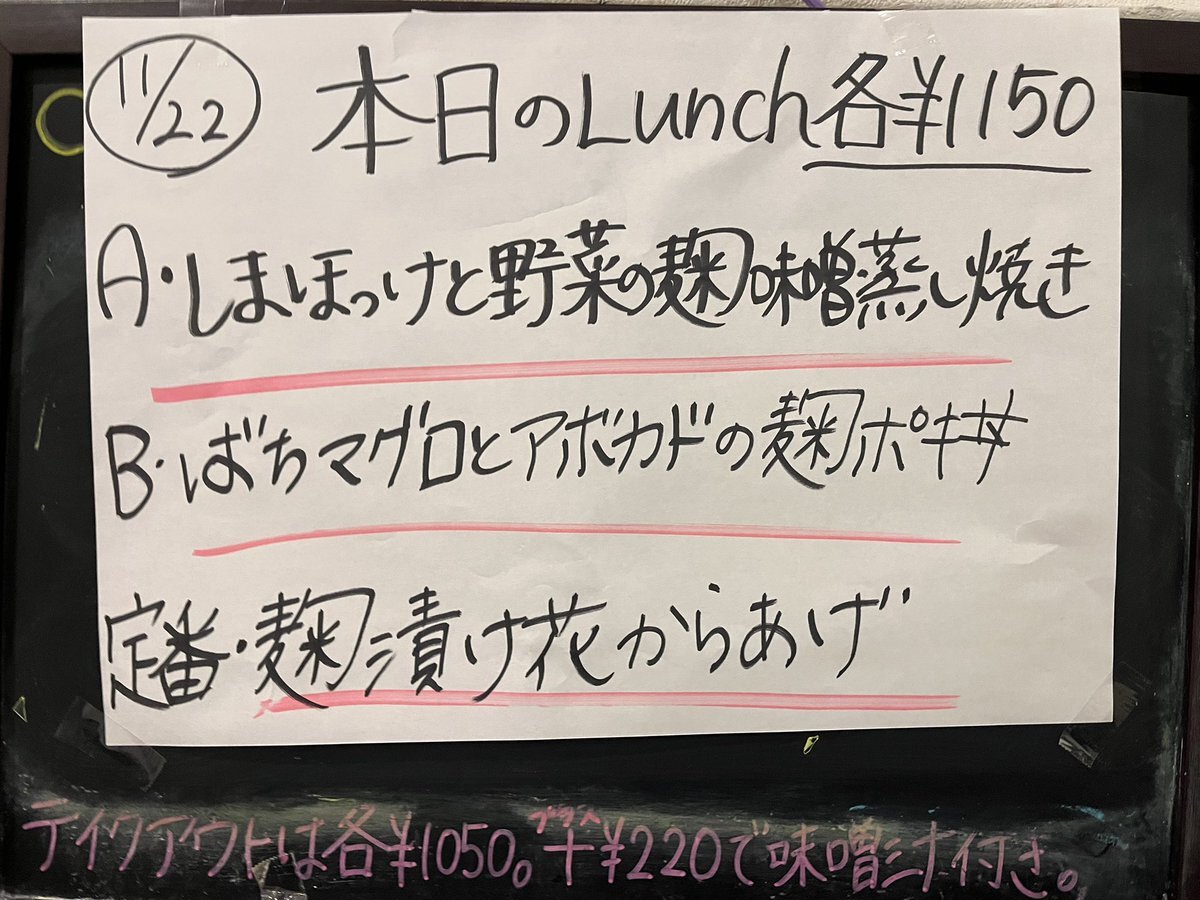 11/22 本日のLunch各¥1150
A・しまほっけと野菜の麹味噌蒸し焼き
B・ばちマグロとアボカドの麹ポキ丼
定番・麹漬け花からあげ
テイクアウトは各¥1050。プラス+¥220で味噌汁付き。